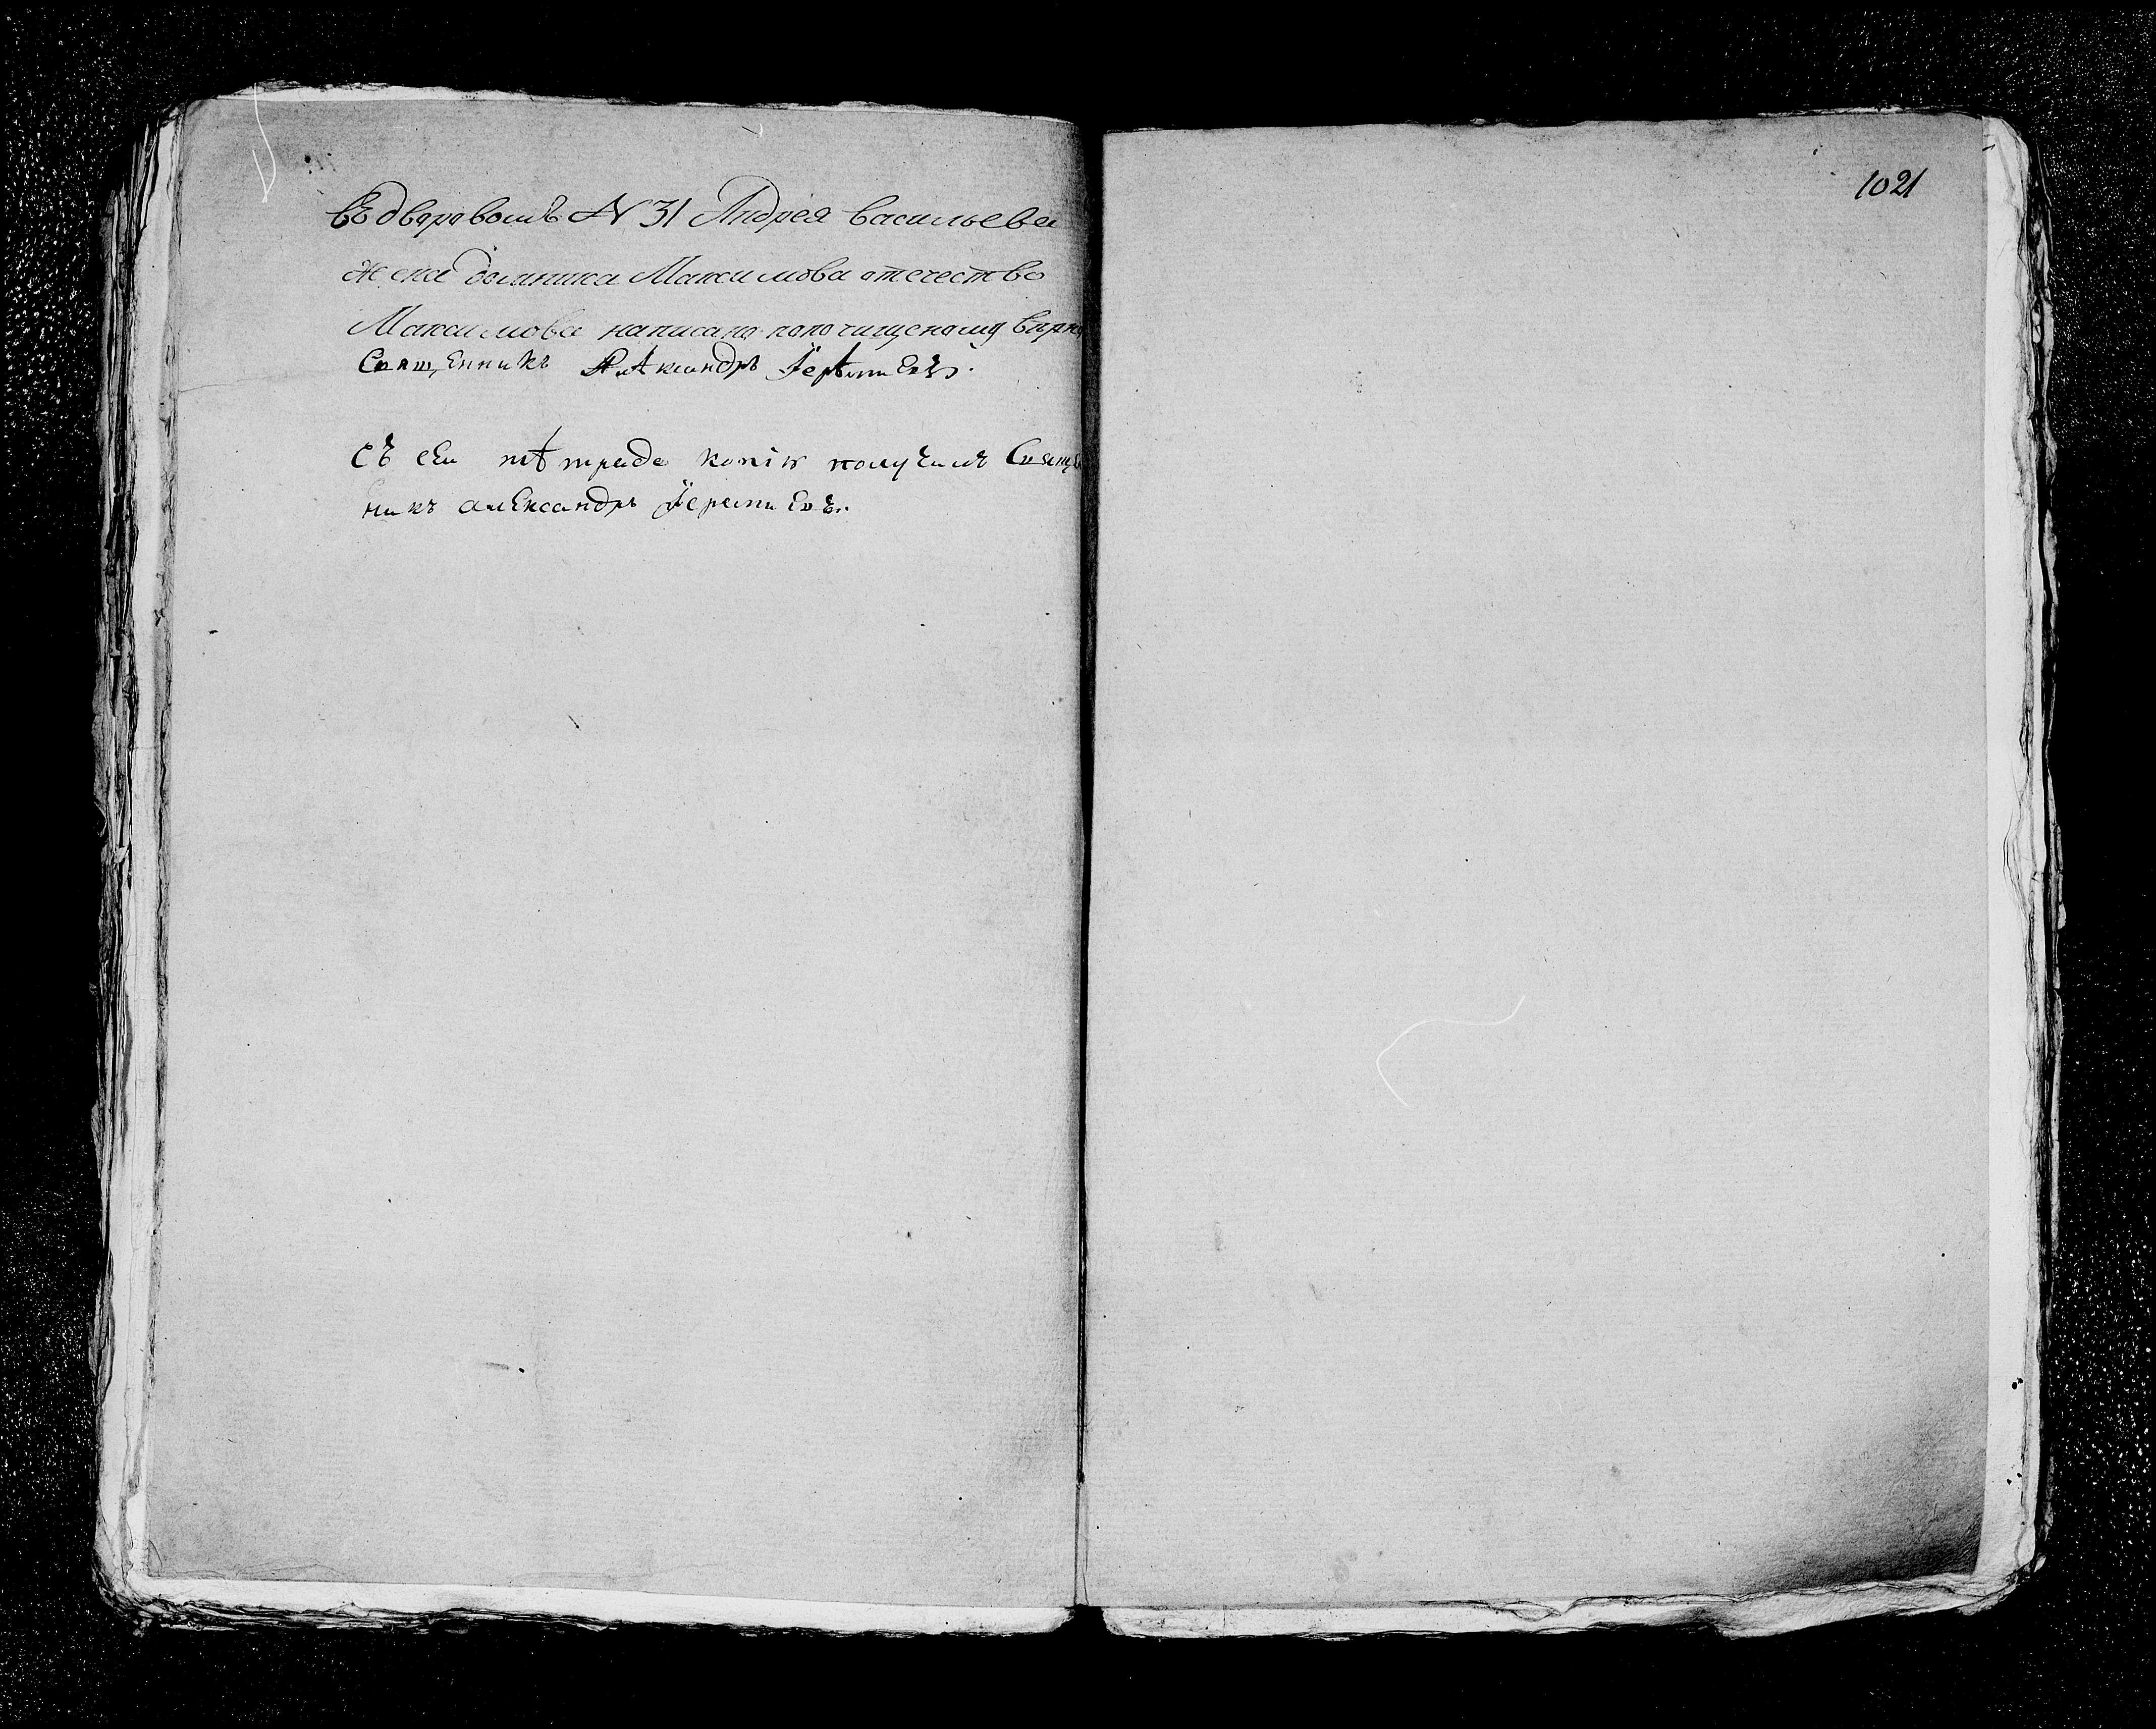 въ дворовомъ N 31 Андрея васильева
жена домника Максимова отечество
Максимова написано попочищеному вѣрно
Священникъ Александръ Іереміевъ.
Съ сеи тетраде копію получилъ Священ
никъ александръ Іереміевъ.
1021